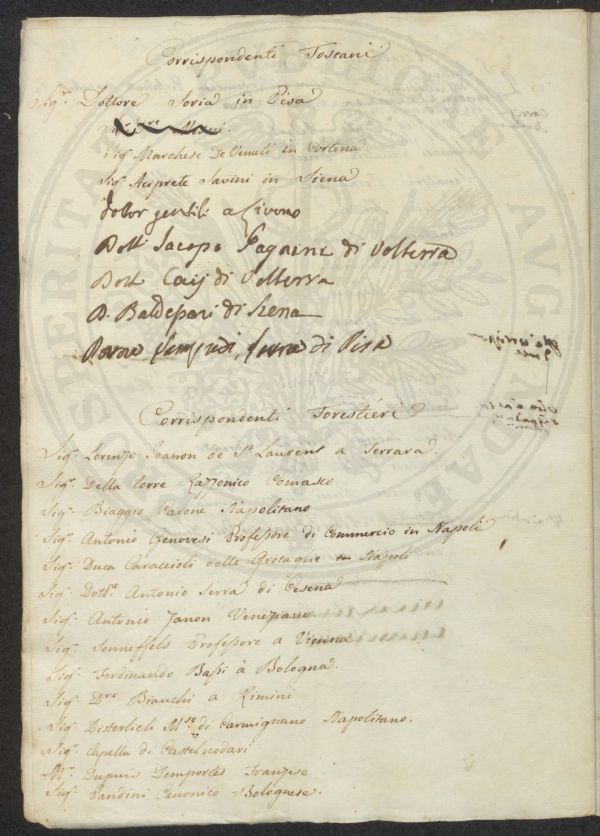 Corrispondenti Toscani
Sig.r Dottore Soria in Pisa
Sig.r Marchese De Venuti in Cortona
Sig.r Aciprete Savini in Siena
dotor gentili a Livorno
Dott Jacopo Pagnini di Volterra
Dott Caij di Volterra
D. Baldepari di Siena
di Pisa
Corrispondenti Forestieri
Sig.r Lorenzo Joanon de St. Laurent a Ferrara.
Sig.r Della torre Razzonico Comasco
Sig.r Biaggio Carone Napolitano
Sig.r Antonio Genovesi Professore di Commercio in Napoli
Sig.r Duca Caraccioli delle Grotaglie Napoli
Sig.r Dott.re Antonio Seria di Cesena
Sig.r Antonio Janon Veneziano
Sig.r Sonneffels Professore a Vienna
Sig.r Ferdinando Bassi à Bologna.
Sig.r D.re Bianchi a Rimini
Sig.r Disterlich M.se di Carmignano Napolitano.
Sig.r Capella di Castelnodari
M.r Dupuis Demportes Franzese
Sig.r Pandini Canonico Bolognese.
PROSPERITATI AUG